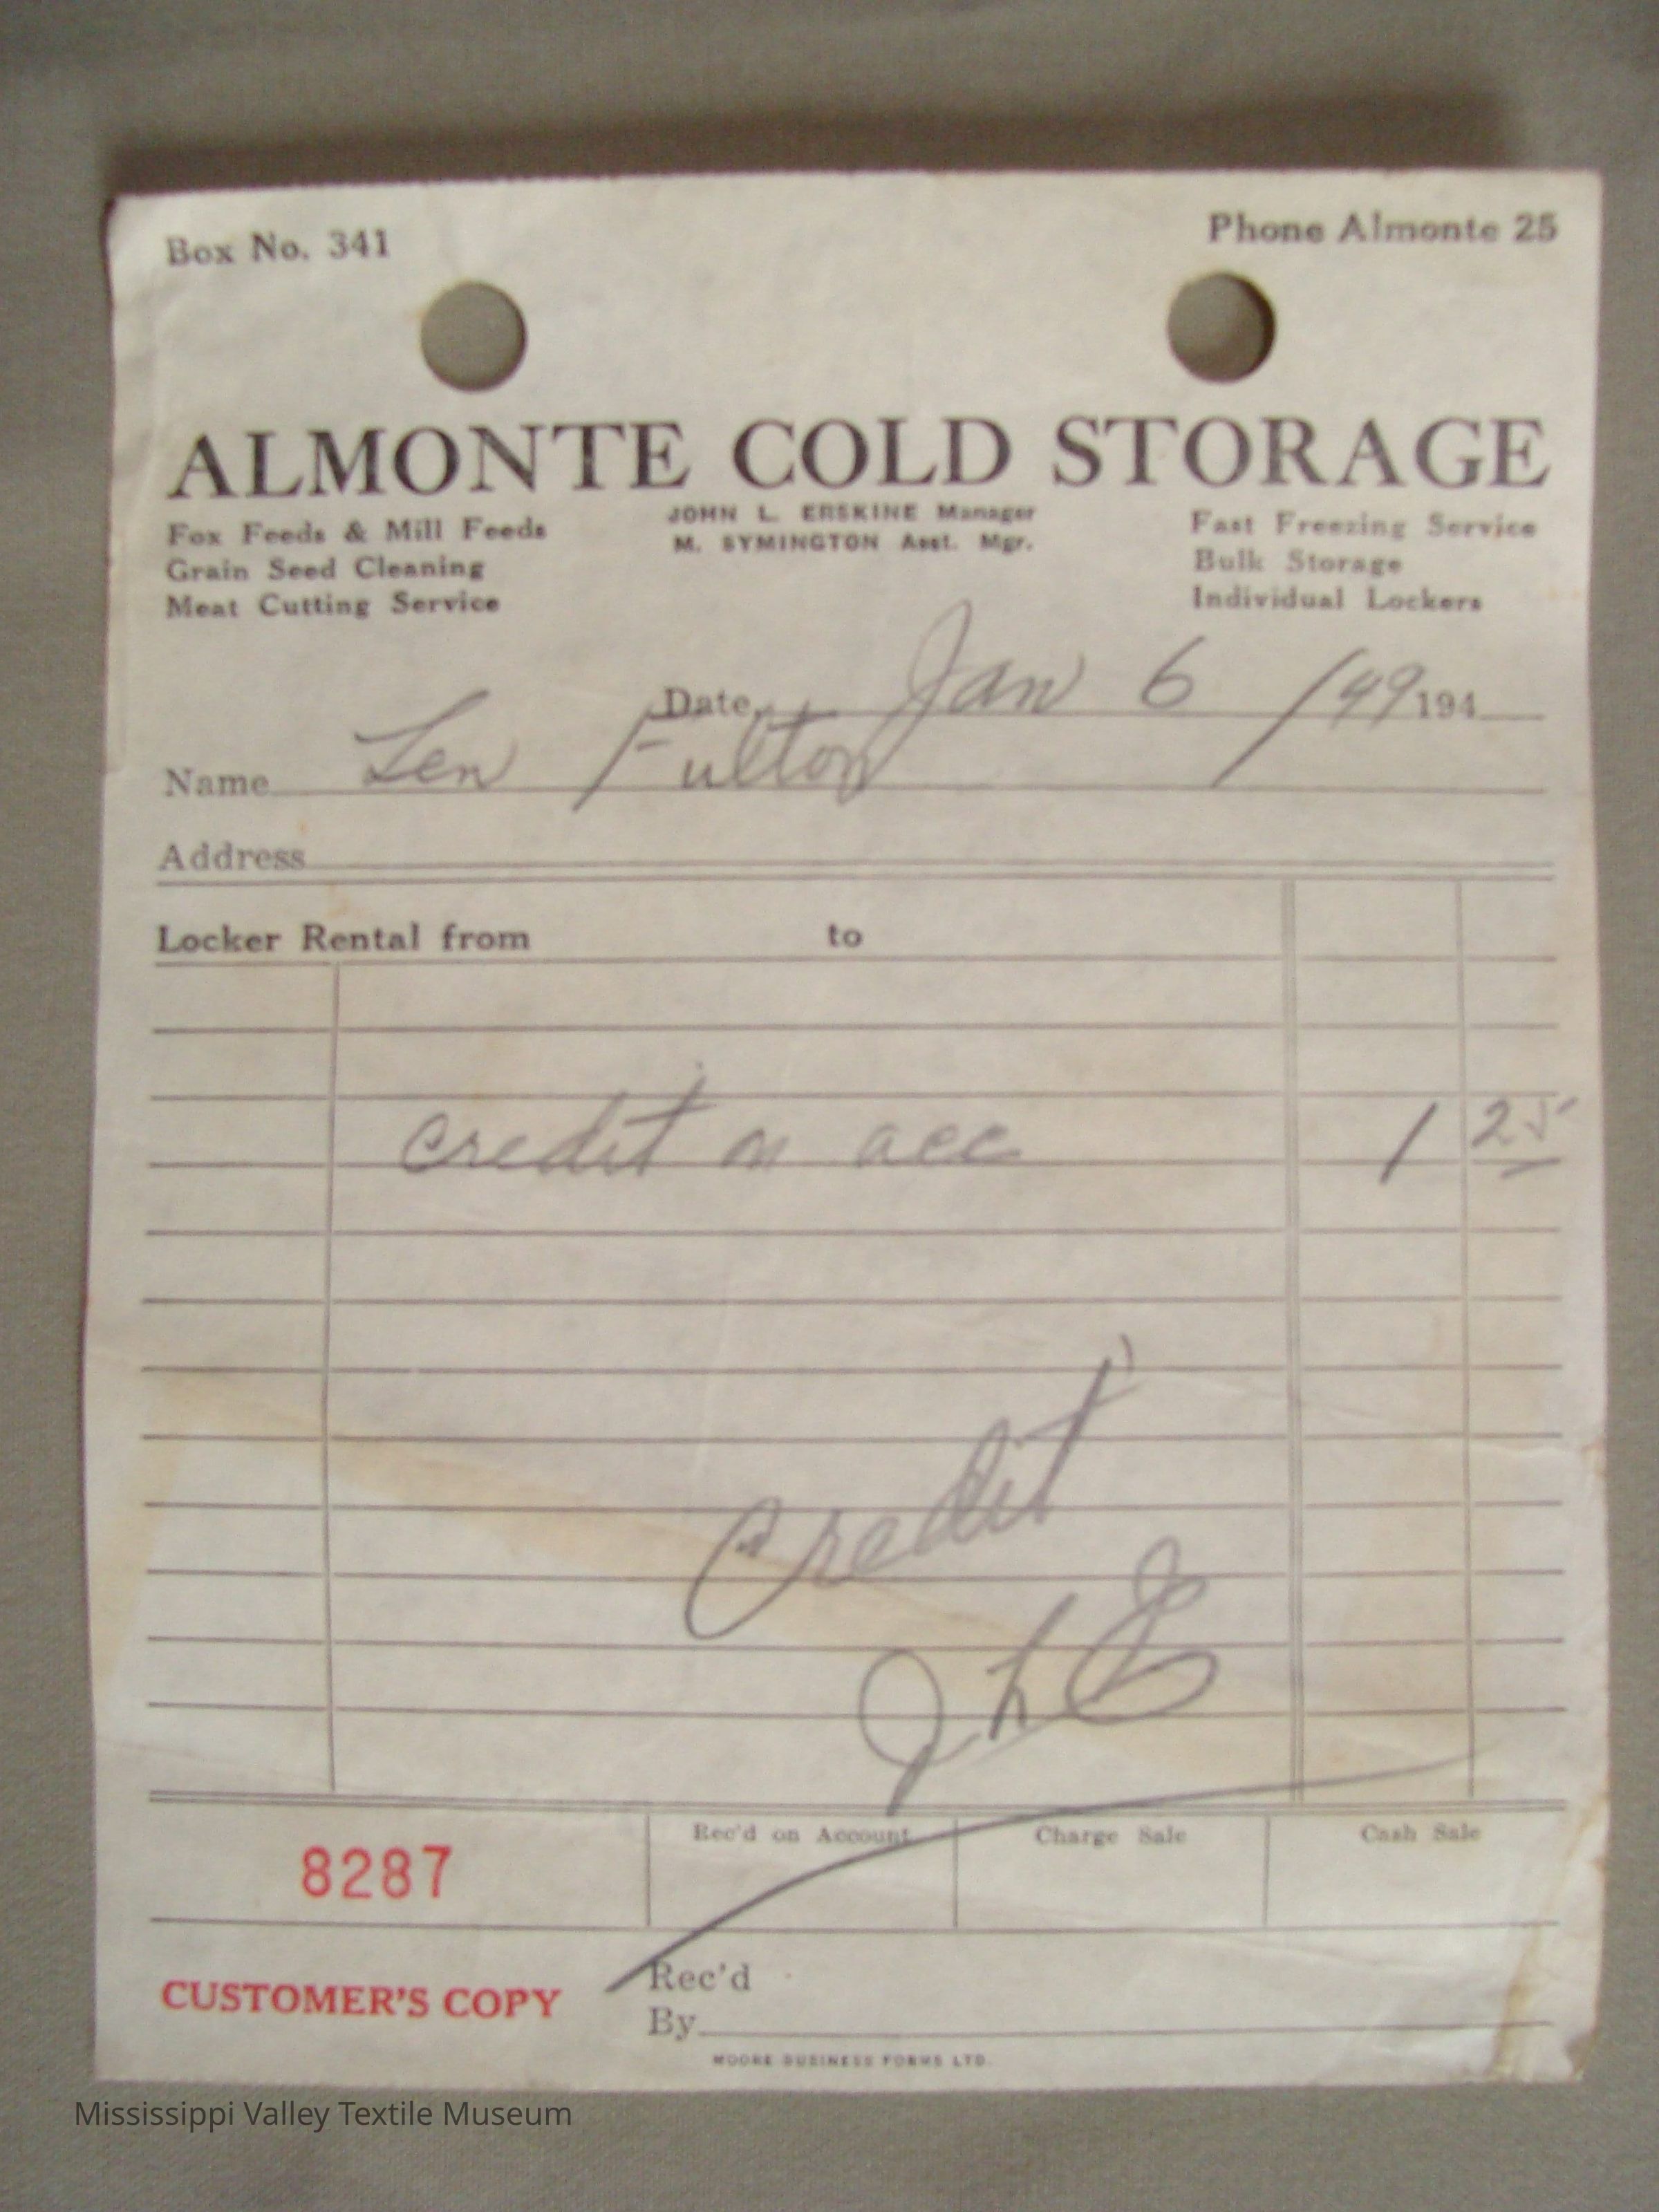 Box No. 341
Phone Almonte 25
ALMONTE COLD STORAGE
Fox Feeds & Mill Feeds
Grain Seed Cleaning
Meat Cutting Service
JOHN L. ERSKINE Manager
M. SYMINGTON Asst. Mgr.
Fast Freezing Service
Bulk Storage
Individual Lockers
Date Jan 6 /49 194
Name Len Fulton
Address
Locker Rental from to
credit on acc 1 25
Credit
JLE
8287
Rec'd on Account
Charge Sale
Cash Sale
CUSTOMER'S COPY
Rec'd
By
MOORE BUSINESS FORMS LTD.
Mississippi Valley Textile Museum